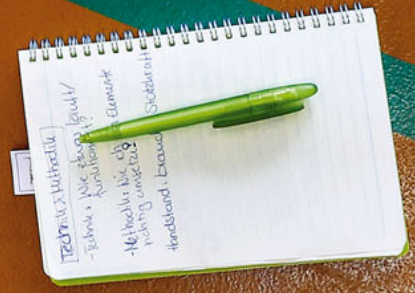 Technik & Methodik
- Technik: Wie etwas läuft/
funktioniert?
- Methodik: Wie ich Elemente
richtig umsetze
Handstand: brauch Stützkraft